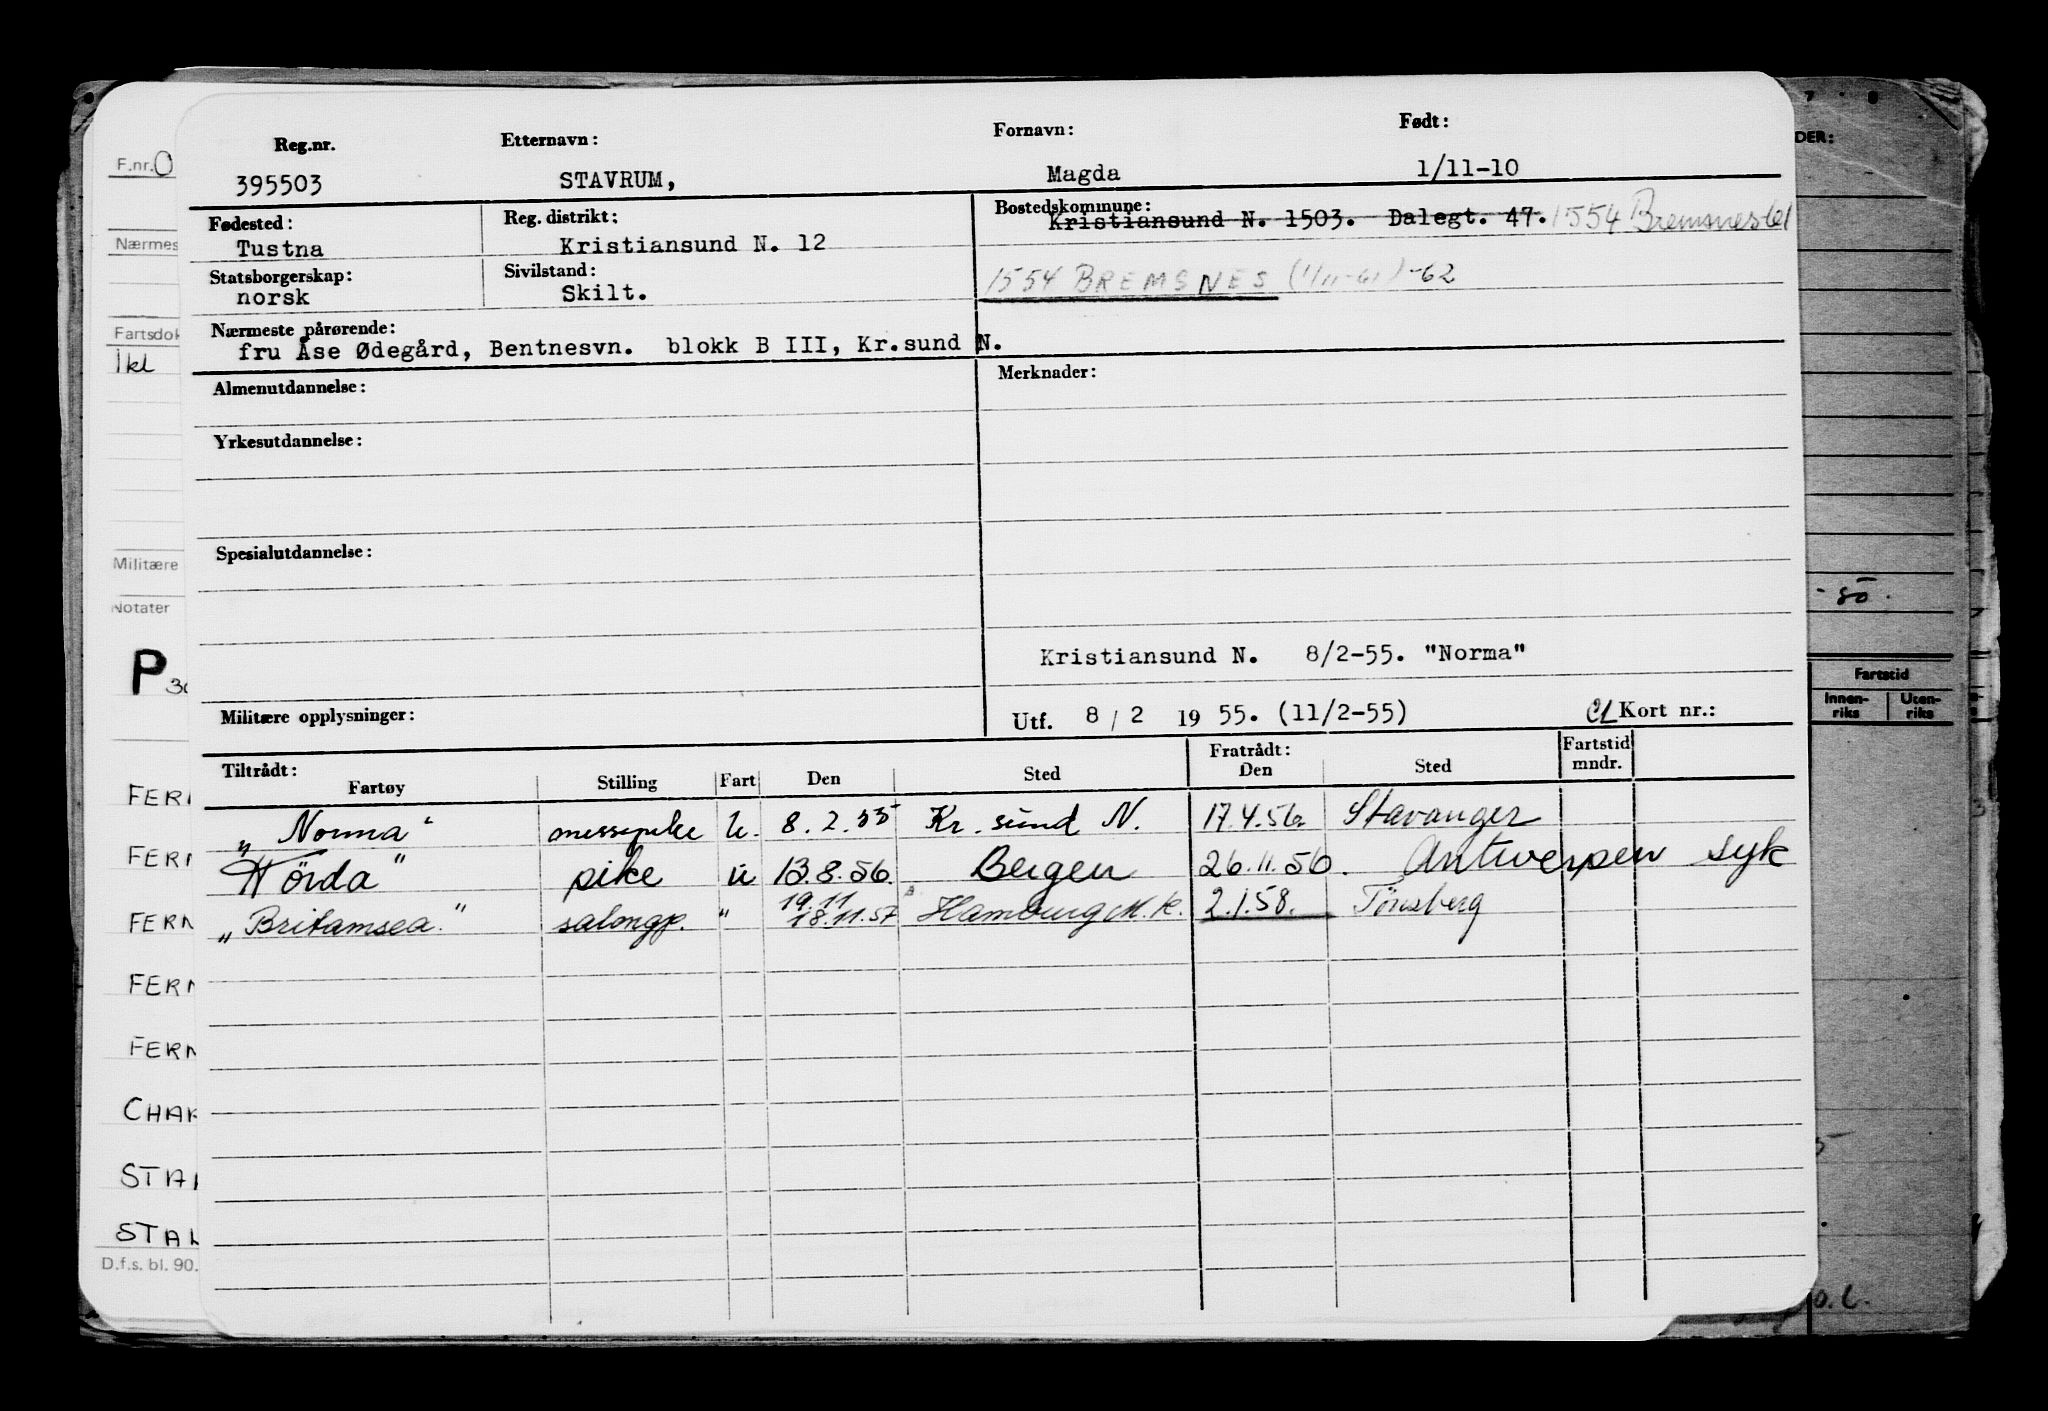 Reg.nr. Etternavn: Fornavn: Født:
395503 STAVRUM, Magda 1/11-10
Fødested: Reg. distrikt: Bostedskommune:
Tustna Kristiansund N. 12 Kristiansund N. 1503. Dalegt. 47. 1554
Statsborgerskap: Sivilstand:
norsk Skilt. 1554 BREMSNES (1/11-61) -62
Nærmeste pårørende:
fru Åse Ødegård, Bentnesvn. blokk B III, Kr.sund N.
Almenutdannelse: Merknader:
Yrkesutdannelse:
Spesialutdannelse:
Kristiansund N. 8/2-55. "Norma"
Militære opplysninger: Utf. 8 / 2 19 55. (11/2-55) Kort nr.:
Tiltrådt: Fratrådt: Fartstid
Fartøy Stilling Fart Den Sted Den Sted mndr.
„Norma" messepike u. 8.2.55 Kr. sund N. 17.4.56 Stavanger
Hörda" pike u 13.8.56. Bergen 26.11.56. Antwerpen syk
19.11
„Britamsea." salongp. " 18.11.57 Hamburg M.k. 2.1.58. Tönsberg
F.nr.0
Nærmes
Fartsdok
1kl
Militære
Notater
P
FERN
FERN
FERN
FERN
FERN
CHAR
STA
STAL
D.f.s. bl. 90.
DER:
-50.
Fartstid
Innen-
riks
Uten-
riks